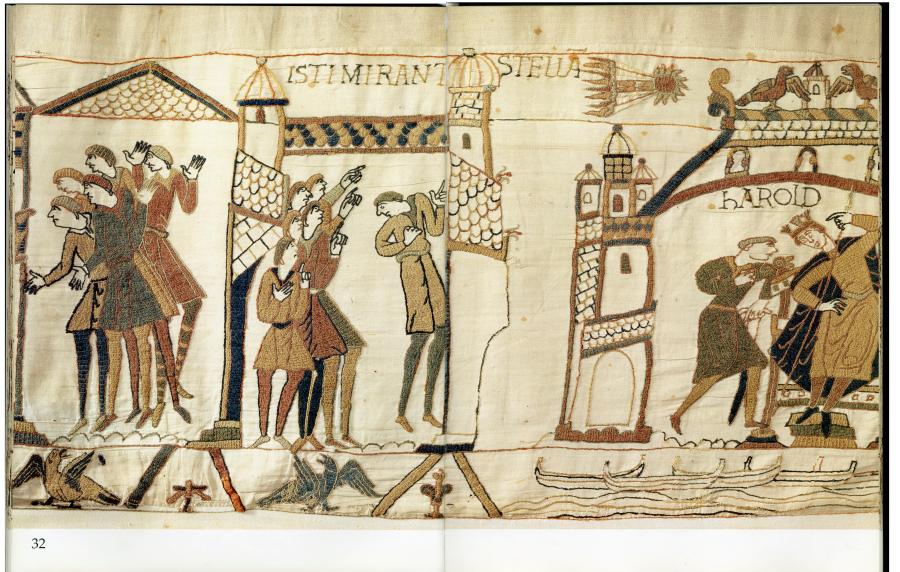 ISTI MIRANT STELLA
hAROLD
32